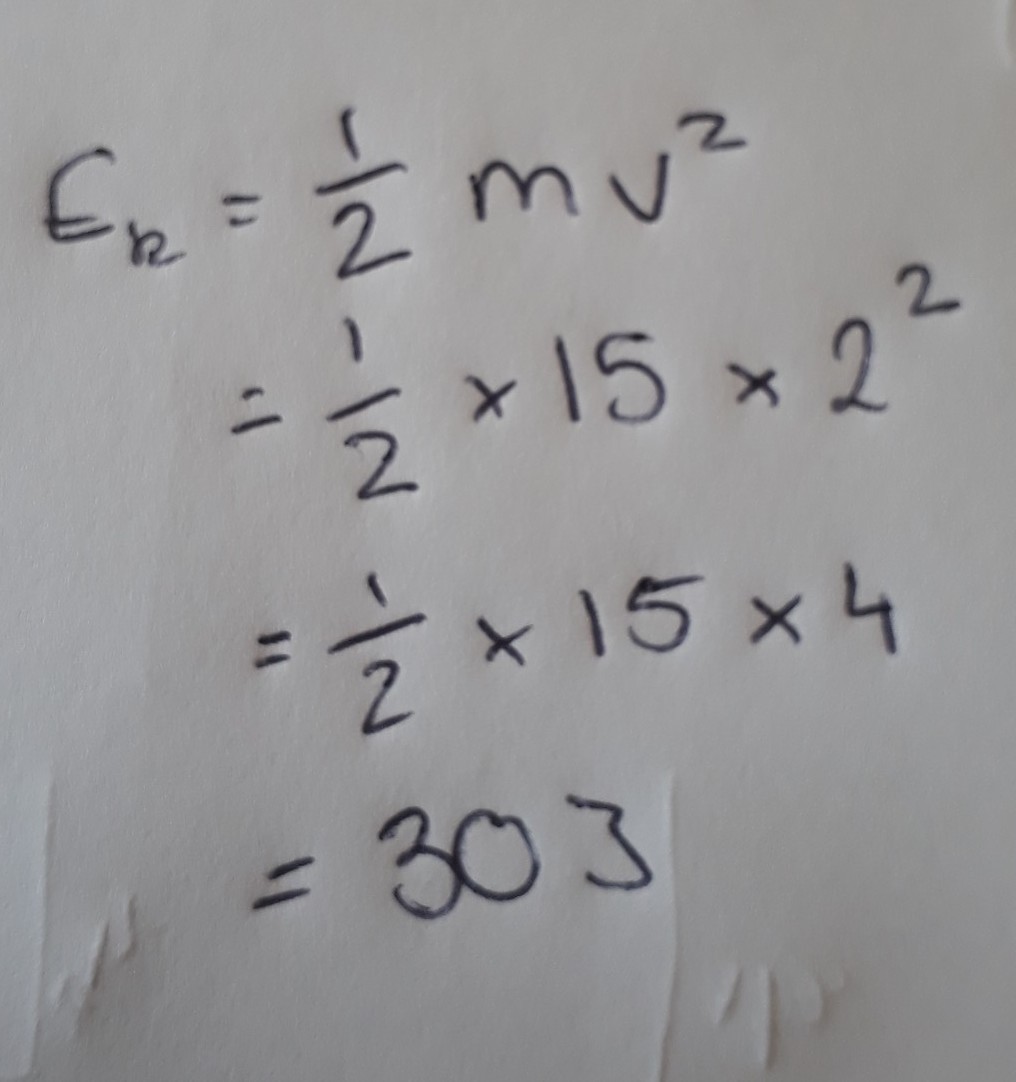 E_k = 1/2 mv²
= 1/2 × 15 × 2²
= 1/2 × 15 × 4
= 30 J